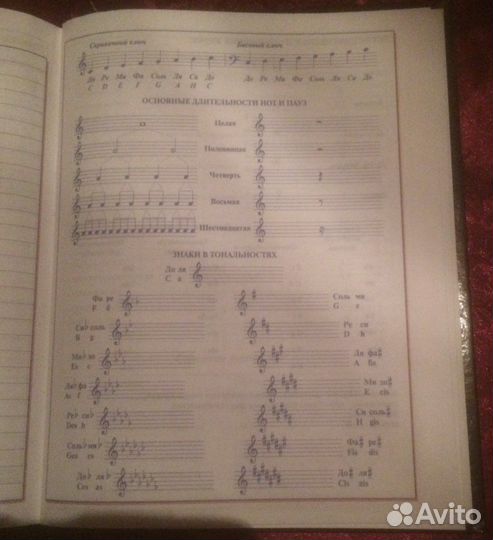 Скрипичный ключ Басовый ключ
До Ре Ми Фа Соль Ля Си До До Ре Ми Фа Соль Ля Си До
C D E F G A H C
ОСНОВНЫЕ ДЛИТЕЛЬНОСТИ НОТ И ПАУЗ
Целая
Половинная
Четверть
Восьмая
Шестнадцатая
ЗНАКИ В ТОНАЛЬНОСТЯХ
До ля
C a
Фа ре Соль ми
F d G e
Си♭ соль Ре си
B g D h
Ми♭ до Ля фа♯
Es c A fis
Ля♭ фа Ми до♯
As f E cis
Ре♭ си♭ Си соль♯
Des b H gis
Соль♭ ми♭ Фа♯ ре♯
Ges es Fis dis
До♭ ля♭ До♯ ля♯
Ces as Cis ais
Avito